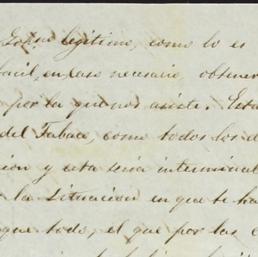 legitimo, como lo es
facil, en caso necesario, obtener
por la que nos asiste. Esta
del Tabaco, como todos los d
ion y esta seria interminabl
la Situacion en que te ha
que todo, el que por las c